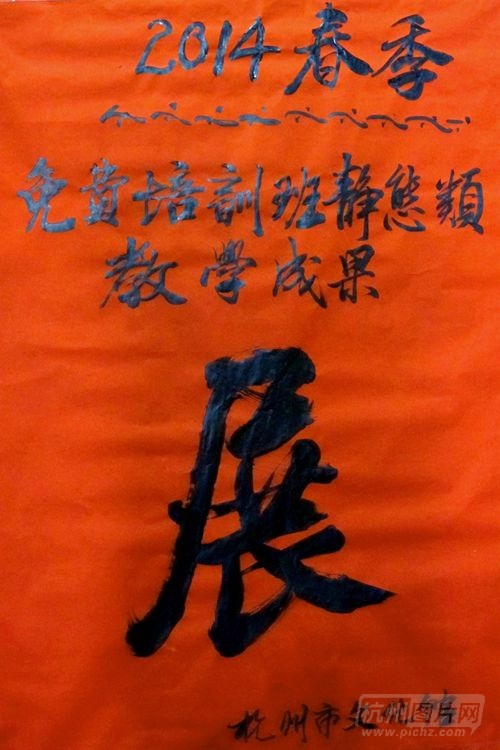 2014春季
免費培訓班静態類
教學成果
展
杭州市文化館
杭州图片网
www.pichz.com